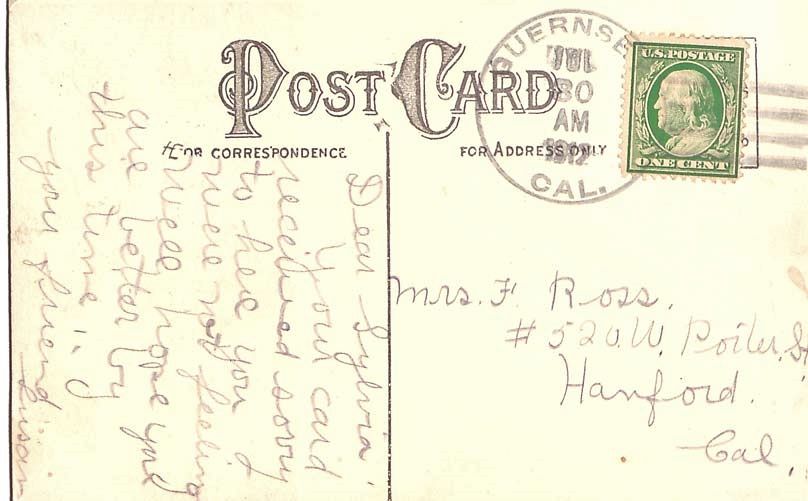 POST CARD
FOR CORRESPONDENCE
FOR ADDRESS ONLY
GUERNSE
JUL
30
AM
1912
CAL.
U.S. POSTAGE
ONE CENT
Dear Sylvia
Your card
received sorry
to here you
were not feeling
well hope you
are better by
this time
your friend
Susan
Mrs. F. Ross.
# 520 W. Poiler St
Hanford.
Cal.